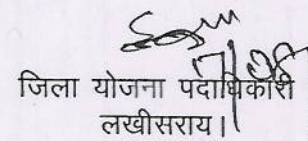 जिला योजना पदाधिकारी
लखीसराय।